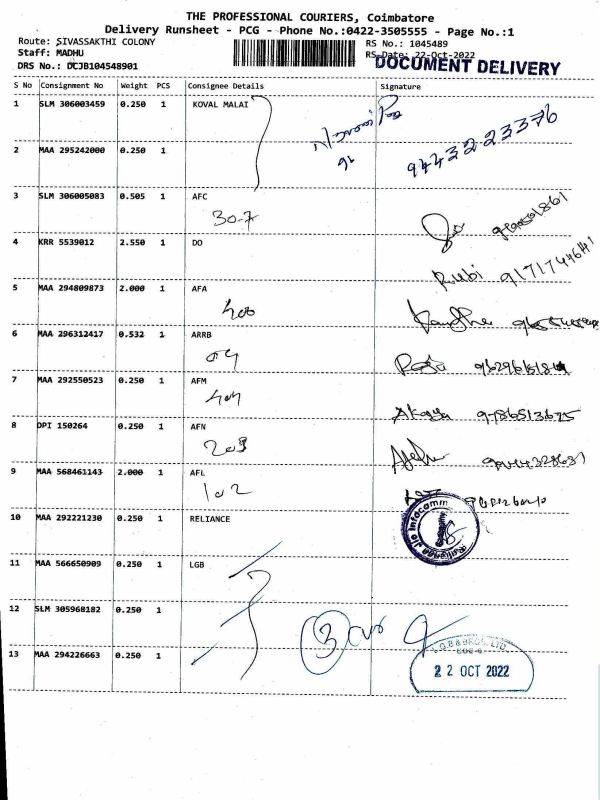 THE PROFESSIONAL COURIERS, Coimbatore
Delivery Runsheet - PCG - Phone No.:0422-3505555 - Page No.:1
Route: SIVASSAKTHI COLONY
Staff: MADHU
DRS No.: DCJB104548901
RS No.: 1045489
RS Date: 22-Oct-2022
DOCUMENT DELIVERY
S No Consignment No Weight PCS Consignee Details Signature
1 SLM 306003459 0.250 1 KOVAL MALAI
94432-23376
2 MAA 295242000 0.250 1
3 SLM 306005083 0.505 1 AFC
30-7
4 KRR 5539012 2.550 1 DO
Rubi 9171744641
5 MAA 294809873 2.000 1 AFA
400
6 MAA 296312417 0.532 1 ARRB
7 MAA 292550523 0.250 1 AFM
404
8 DPI 150264 0.250 1 AFN
203
9 MAA 568461143 2.000 1 AFL
102
10 MAA 292221230 0.250 1 RELIANCE
Reliance Jio Infocomm
11 MAA 566650909 0.250 1 LGB
12 SLM 305968182 0.250 1
3
13 MAA 294226663 0.250 1
L.G.B & BROS. LTD
22 OCT 2022